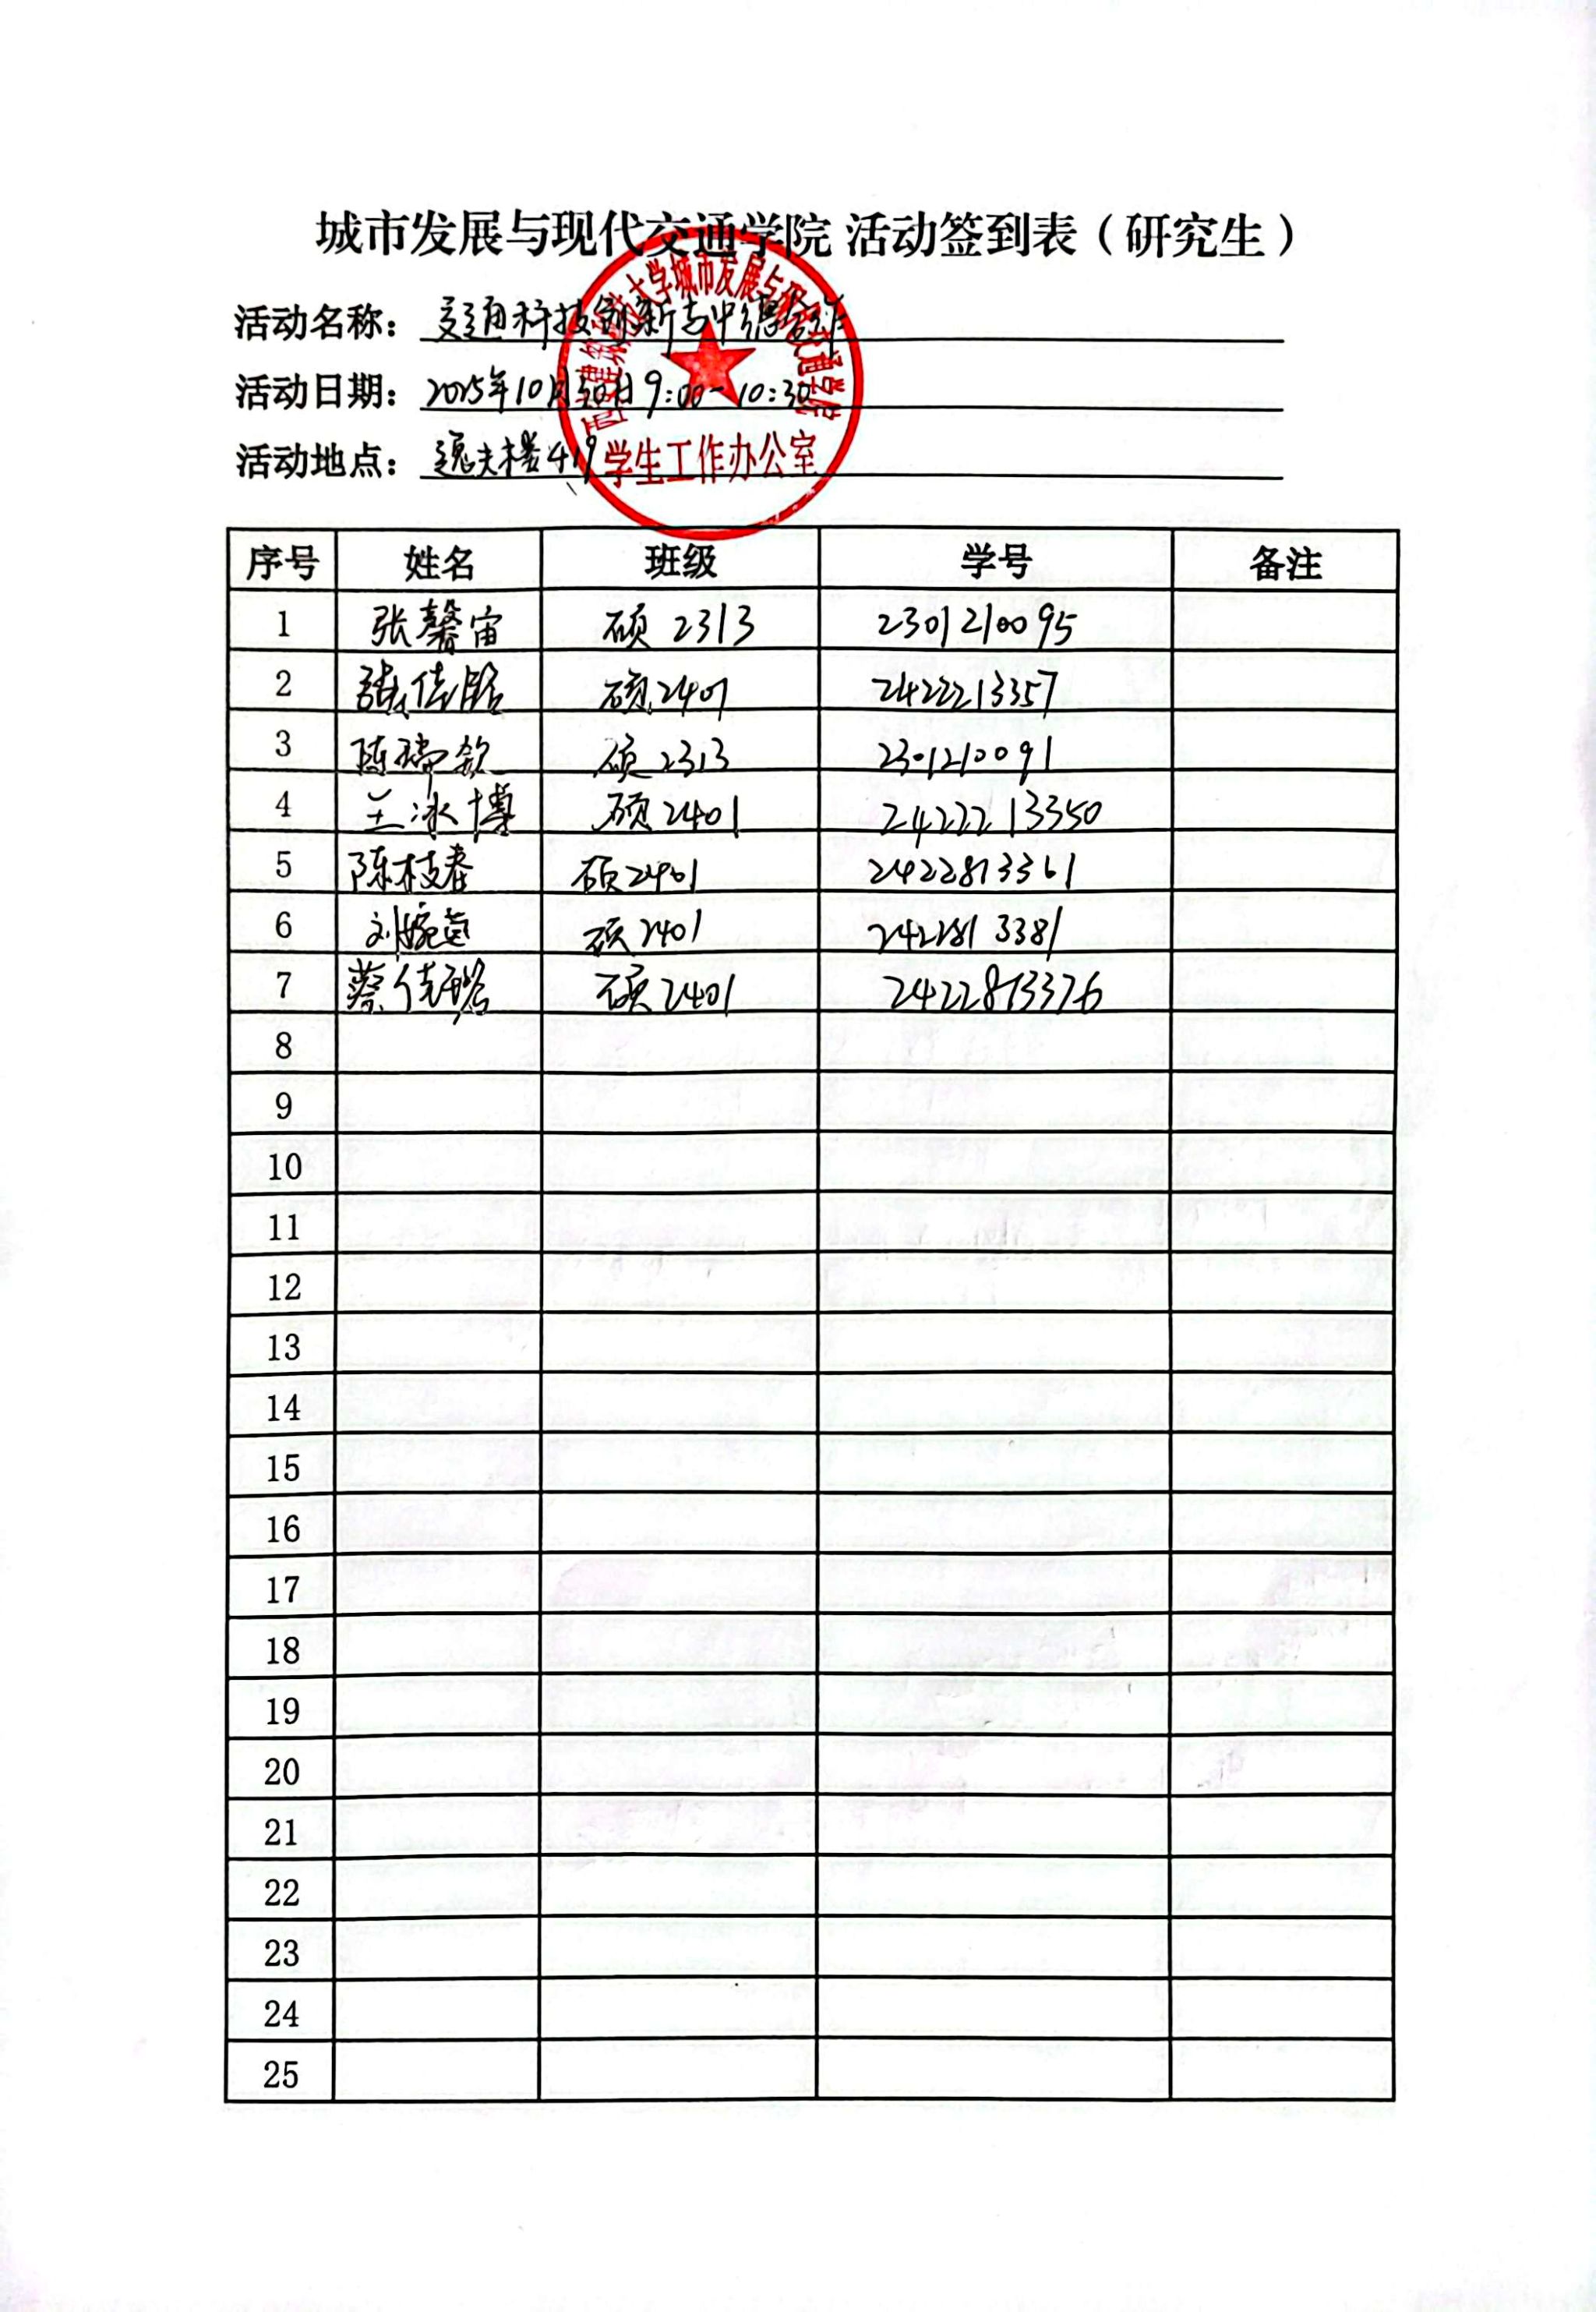 城市发展与现代交通学院 活动签到表（研究生）
活动名称： 交通科技创新与中德合作
活动日期： 2025年10月30日 9:00-10:30
活动地点： 逸夫楼419
西安建筑科技大学城市发展与现代交通学院
学生工作办公室
序号 姓名 班级 学号 备注
1 张馨宙 硕2313 2301210095
2 张佳 硕2401 2422213357
3 陈瑞欽 硕2313 2301210091
4 王冰博 硕2401 2422213350
5 陈枝春 硕2401 2422813361
6 刘婉茵 硕2401 2422813381
7 蔡佳璐 硕2401 2422813376
8
9
10
11
12
13
14
15
16
17
18
19
20
21
22
23
24
25